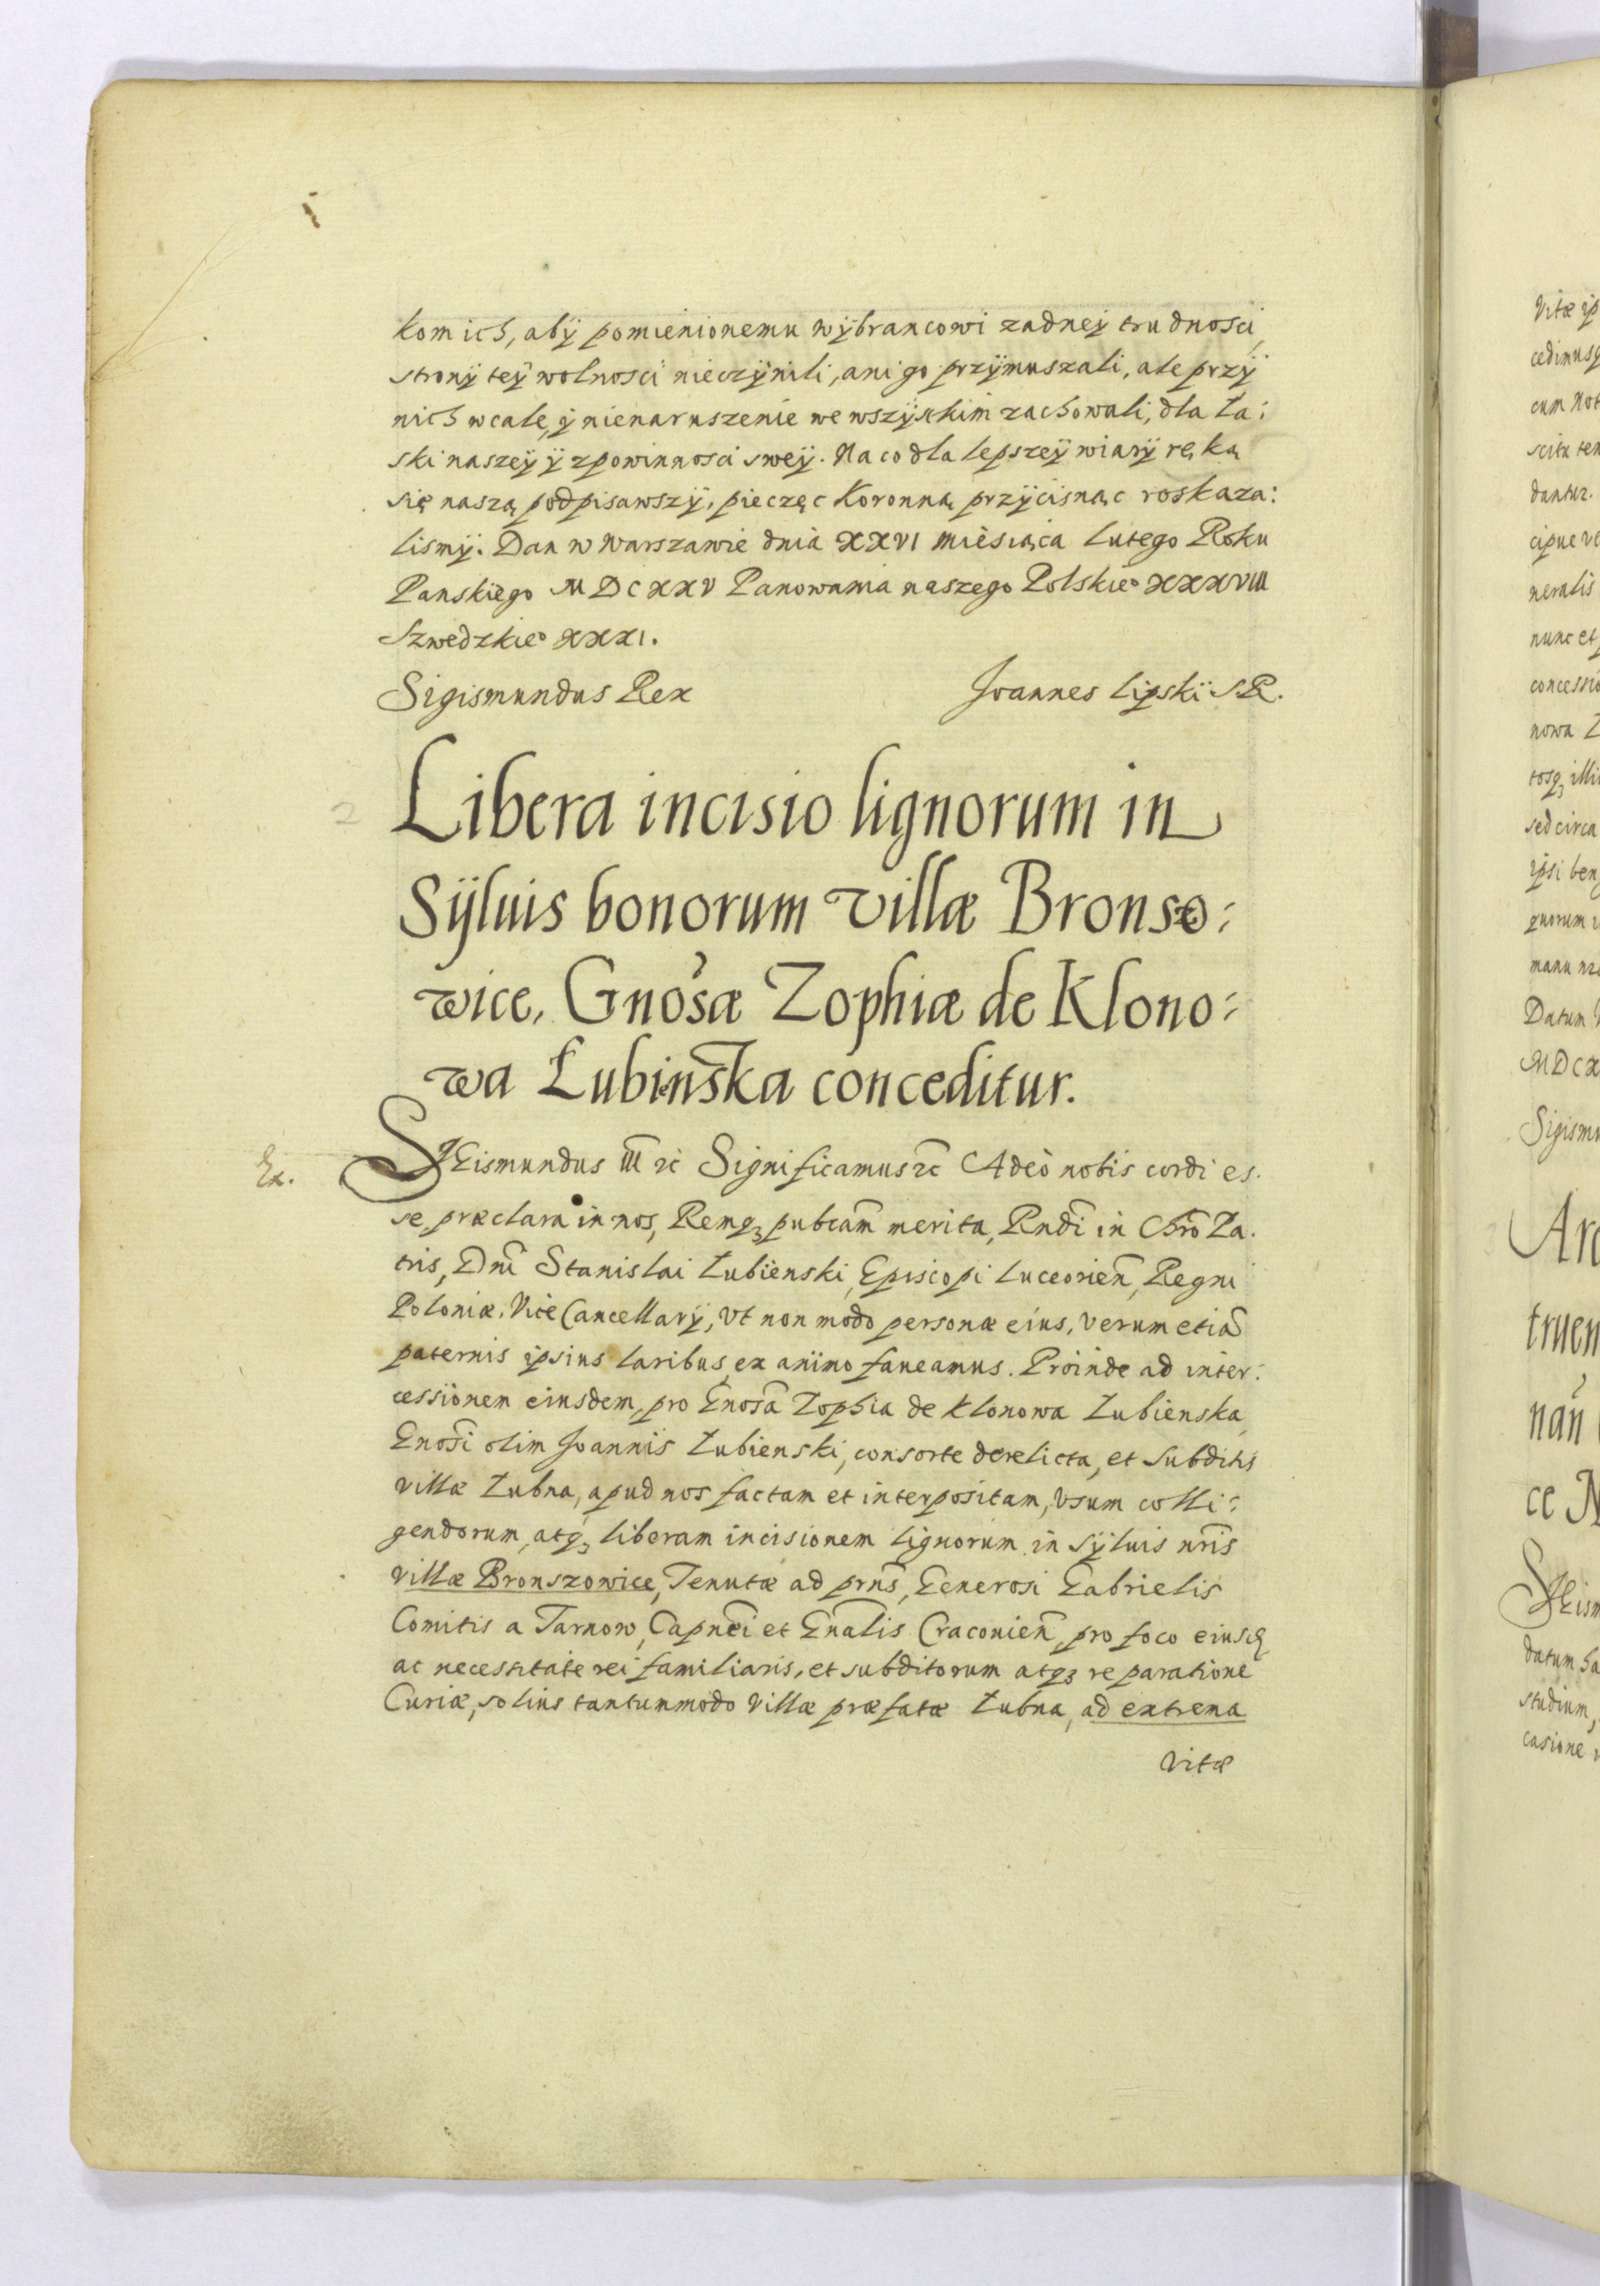 kom ich, abÿ pomienionemu wÿbrancowi zadneÿ trudnosci,
stronÿ teÿ wolnosci nieczÿnili, ani go przÿmuszali, ale przÿ
nich wcale, ÿ nienaruszenie we wszÿstkim zachowali, dla ła:
ski naszeÿ ÿ zpowinnosci sweÿ. Na co dla lepszeÿ wiarÿ ręką
się naszą podpisawszÿ, pieczęc Koronną przÿcisnąc roskaza:
lismÿ. Dan w Warszawie dnia XXVI Miesiąca Lutego Roku
Panskiego MDCXXV Panowania naszego Polskieº XXXVIII
Szwedzkieº XXXI.
Sigismundus Rex Joannes Lipskÿ S.R.
Libera incisio lignorum in
Sÿluis bonorum villæ Bronszo:
wice, Gnosæ Zophiæ de Klono:
wa Łubinska conceditur.
Ex.
SIGismundus III zc Significamus zc Adeò nobis cordi es.
se præclara in nos, Remq3 pubcam merita, Rndi in Chro Pa.
tris, Dni Stanislai Łubienski, Episcopi Luceorien, Regni
Poloniæ. Vice Cancellarÿ, Vt non modo personæ eius, verum etia
paternis ipsius laribus, ex animo faueamus. Proinde ad inter:
cessionem eiusdem, pro Gnosa Zophia de Klonowa Łubienska,
Gnosi olim Joannis Łubienski, consorte derelicta, et Subditis
villæ Łubna, apud nos factam et interpositam, Vsum colli:
gendorum, atq3 liberam incisionem lignorum in sÿluis nris
villæ Bronszowice, Tenutæ ad prns, Generosi Gabrielis
Comitis a Tarnow, Capnei et Gnalis Craconien, pro foco eiusq3
ac necessitate rei familiaris, et subditorum atq3 reparatione
Curiæ, solius tantummodo Villæ præfatæ Łubna, ad extrema
Vitæ